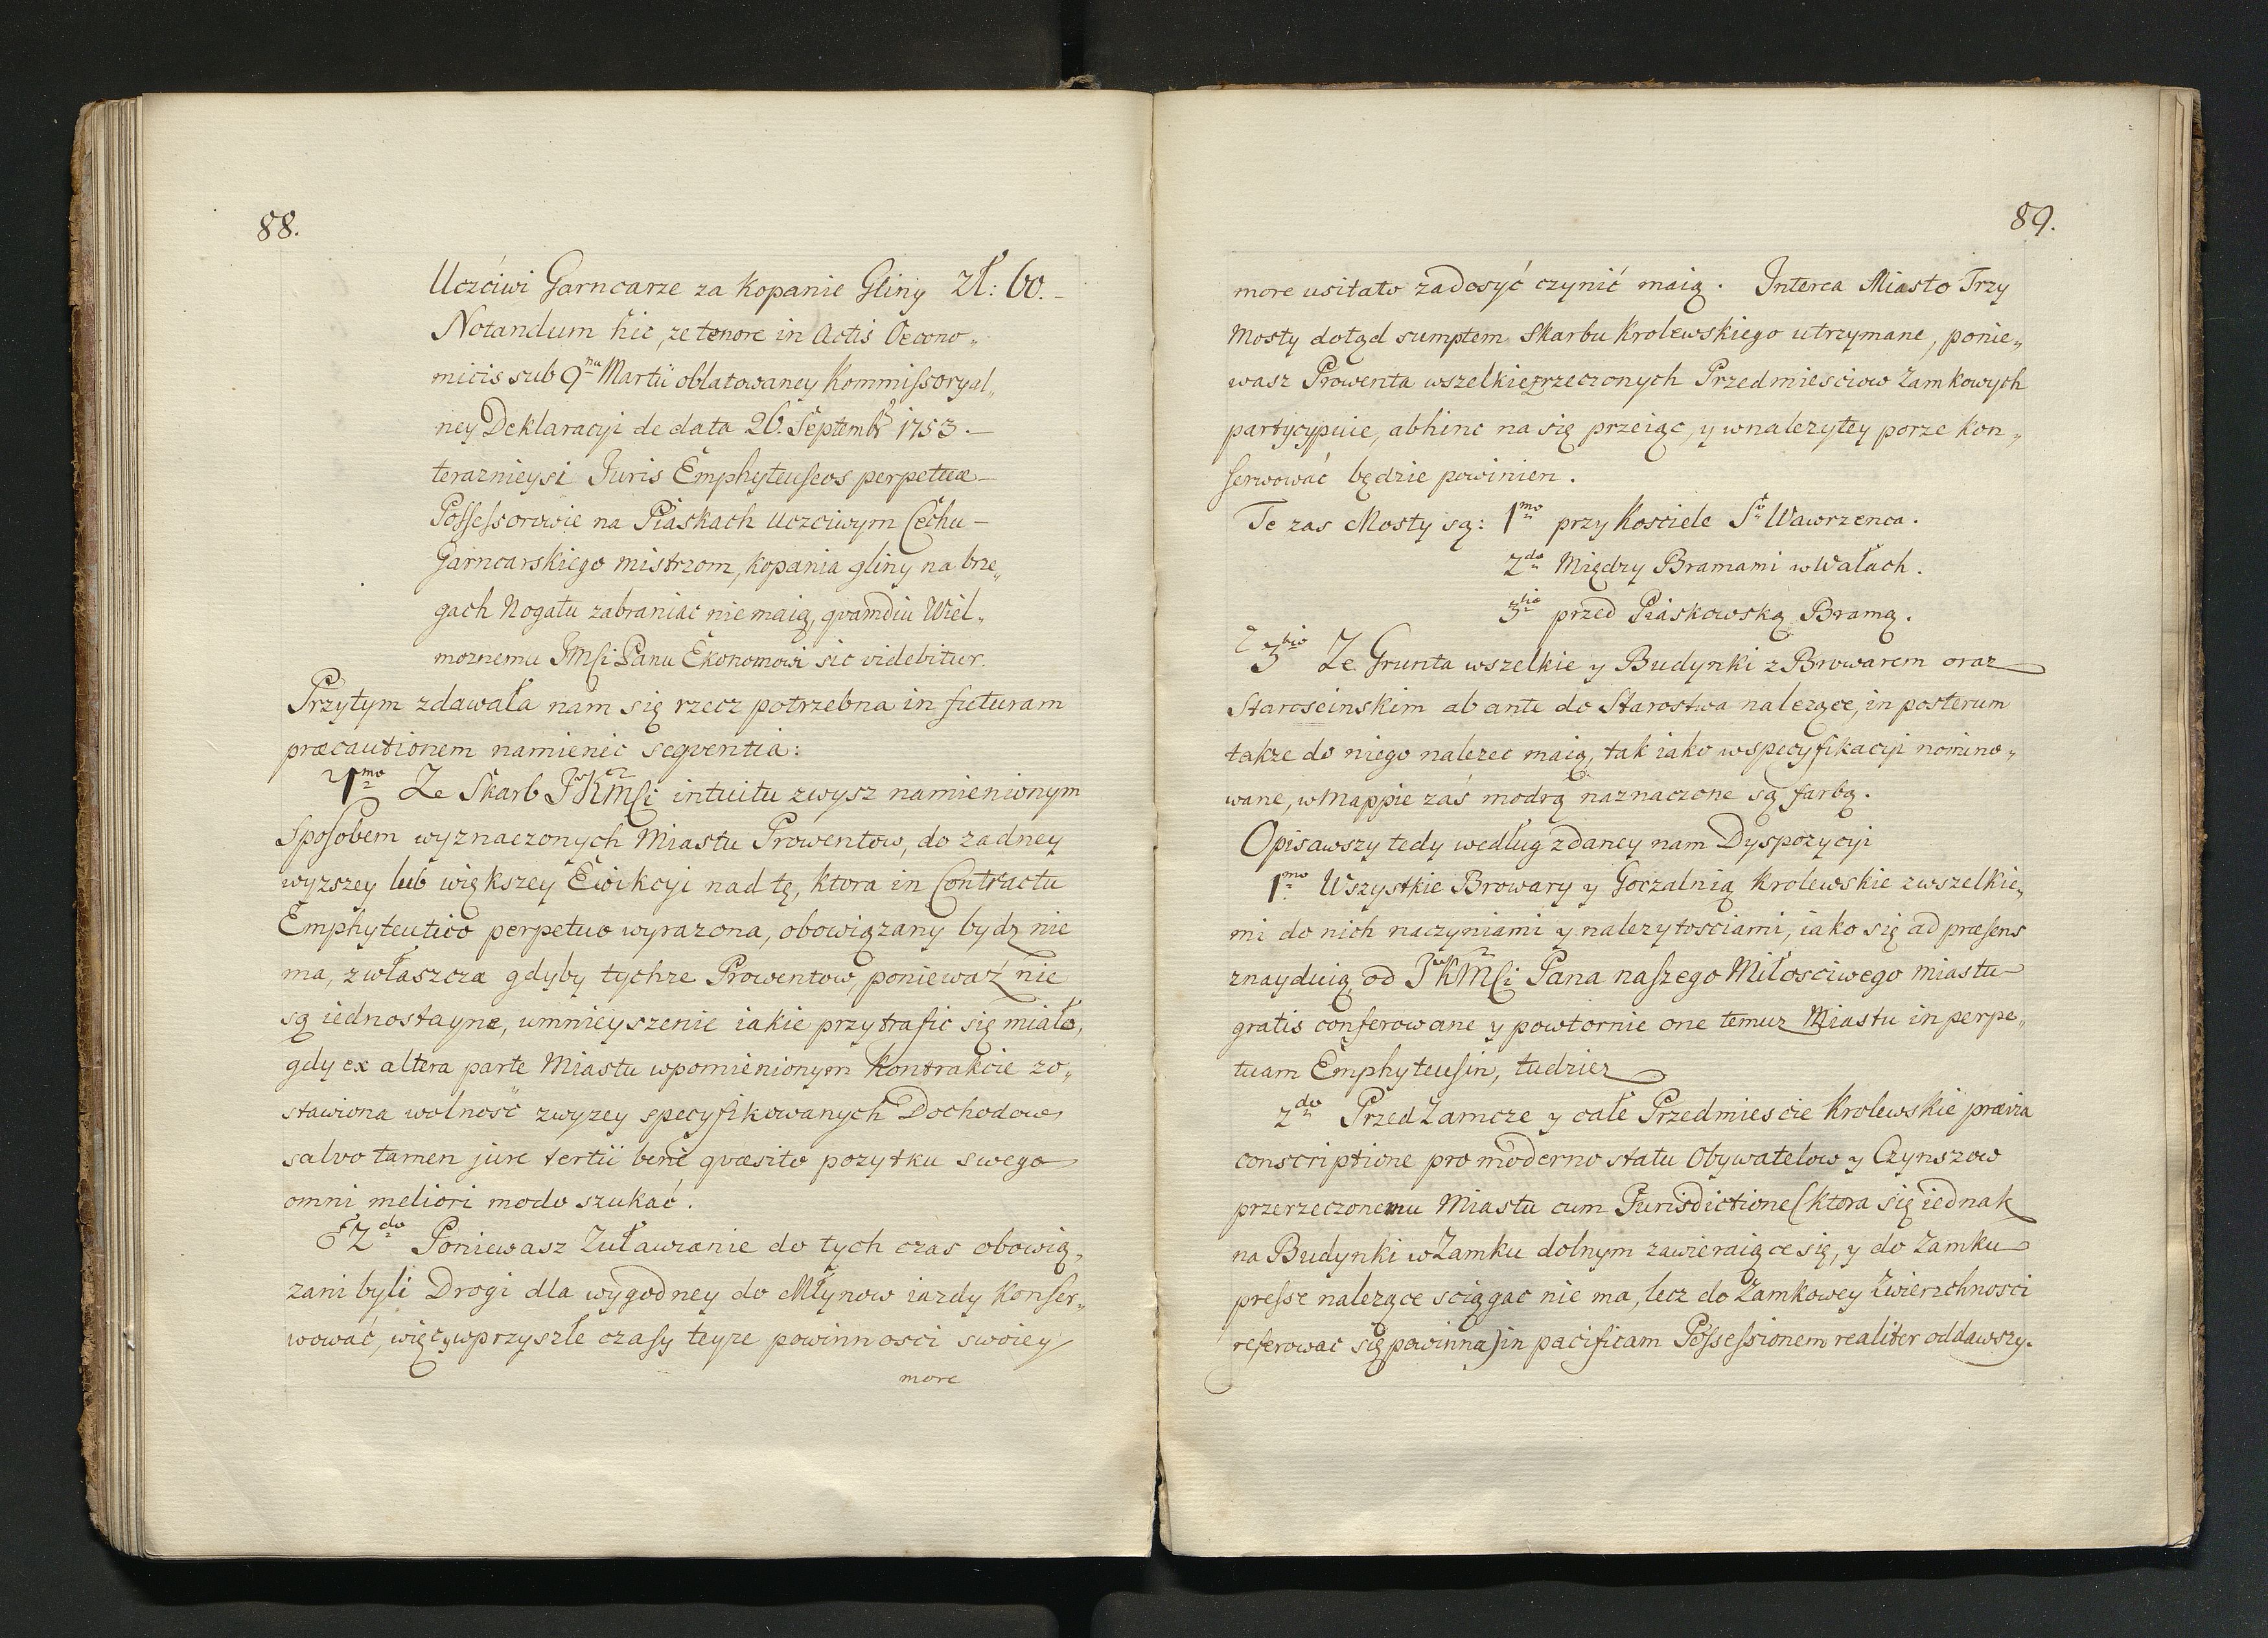 88.
Uczciwi Garncarze za kopanie Gliny Zł: 60.–
Notandum hic, ze tenore in Actis Oecono„
micis sub 9na Martii oblatowaney Kommissoryal„
ney Deklaracyi de data 26. Septembr 1753.–
teraznieysi Juris Emphyteuseos perpetuæ–
Possessorowie na Piaskach Uczciwym Cechu–
Garncarskiego mistrzom, kopania gliny na brze„
gach Nogatu zabraniac nie maią, qvamdiu Wiel„
moznemu JMSci Panu Ekonomowi sic videbitur.
Przytym zdawała nam się rzecz potrzebna in futuram
præcautionem namienic seqventia:
1mo Ze Skarb JKMSci intuitu zwysz namienionym
Sposobem wyznaczonych Miastu Prowentow, do zadney
wyzszey lub większey Ewikcyi nad tę, ktora in Contractu
Emphyteutico perpetuo wyrazona, obowiązany bydz nie
ma, zwłaszcza gdyby tychze Prowentow, ponieważ nie
są iednostayne, umnieyszenie iakie przytrafic się miało,
gdy ex altera parte Miastu wpomienionym Kontrakcie zo„
stawiona wolność zwyzey specyfikowanych Dochodow
salvo tamen jure tertii bene qvæsito pozytku swego
omni meliori modo szukać.
2do Poniewasz Zuławianie do tych czas obowią„
zani byli Drogi dla wygodney do Młynow iazdy konser„
wować, więc y wprzyszłe czasy teyze powinnosci swoiey
more
89.
more usitato zadosyć czynić maią. Interea Miasto Trzy
Mosty dotąd sumptem Skarbu Krolewskiego utrzymane, ponie„
wasz Prowenta wszelkie przrzeczonych Przedmiesciow Zamkowych
partycypuie, abhinc na się przeiąc, y wnalezytey porze kon„
serwować będzie powinien.
Te zas Mosty są: 1mo przy Kosciele So Wawrzenca.
2do Między Bramami w Wałach.
3tio przed Piaskowską Bramą.
3tio Ze Grunta wszelkie y Budynki z Browarem oraz
Staroscinskim ab ante do Starostwa nalezące, in posterum
takze do niego nalezec maią, tak iako wspecyfikacyi nomino„
wane, w Mappie zaś modrą naznaczone są farbą.
Opisawszy tedy według zdaney nam Dyspozycyi
1mo Wszystkie Browary y Gorzalnią Krolewskie zwszelkie„
mi do nich naczyniami y nalezytosciami, iako się ad præsens
znayduią, od JKMSci Pana naszego Miłosciwego miastu
gratis conferowane y powtornie one temuz Miastu in perpe„
tuam Emphyteusin, tudziez
2do Przed Zamcze y całe Przedmiescie Krolewskie prævia
conscriptione pro moderno statu Obywatelow y Czynszow
przerzeczonemu Miastu cum Jurisdictione (ktora się iednak
na Budynki w Zamku dolnym zawieraiące się, y do Zamku
presse nalezące sciągac nie ma, lecz do Zamkowey Zwierzchnosci
referowac się powinna) in pacificam Possessionem realiter oddawszy.